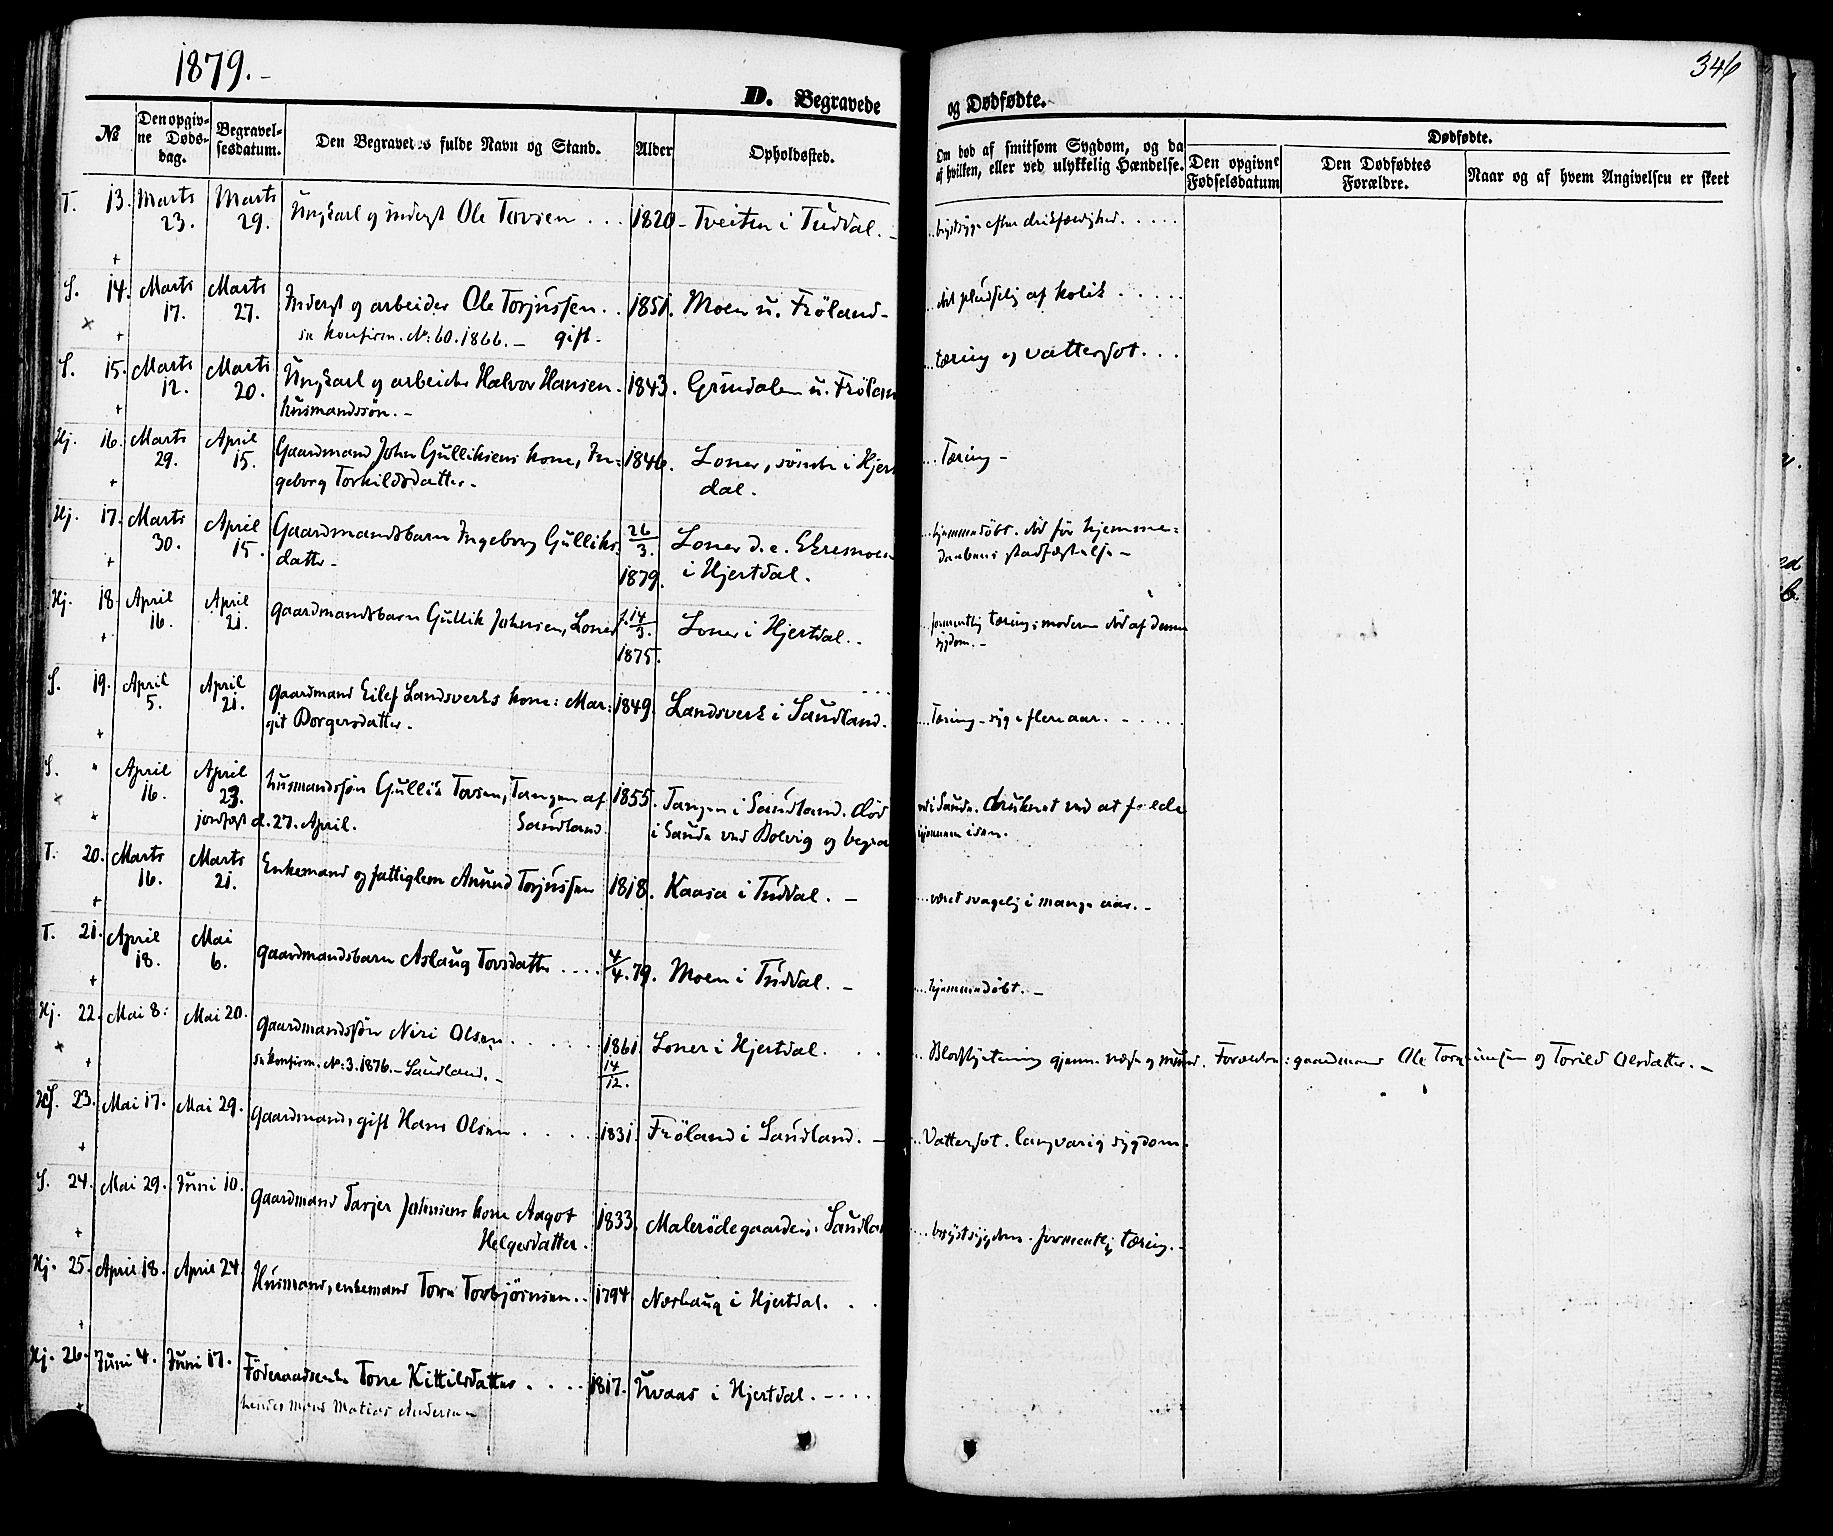 1879.-
346
D. Begravede
og Dødfødte.
№
Den opgiv-
ne Døds-
dag.
Begravel-
sesdatum.
Den Begravedes fulde Navn og Stand.
Alder
Opholdssted.
Om død af smitsom Sygdom, og da
af hvilken, eller ved ulykkelig Hændelse.
Dødfødte.
Den opgivne
Fødselsdatum
Den Dødfødtes
Forældre.
Naar og af hvem Angivelsen er skeet
T. 13. Marts 23. Marts 29. Ungkarl og inderst Ole Tovsen ... 1820 - Tveiten i Tuddal. -
... brystsyge efter drikfældighed. .....
S. 14. Marts 17. Marts 27. Inderst og arbeider Ole Torjussen .. 1851. Moen u. Fröland -
se konfirm. No: 60. 1866. - gift -
död pludselig af kolik .....
S. 15. Marts 12. Marts 20. Ungkarl og arbeider Halvor Hansen. 1843. Grundalen u. Fröland
husmandssön. -
... tæring og vattersot. ...
Hj. 16. Marts 29. April 15. Gaardmand John Gulliksens kone, In- 1846. Loner, söndre i Hjert
geborg Torkildsdatter - dal.
... Tæring -
Hj. 17. Marts 30. April 15. Gaardmandsbarn Ingeborg Gulliks- 26/3. 1879. Loner d. e. Ekremoen
datter - i Hjertdal.
... hjemmedöbt. död för hjemme=
daabens stadfæstelse -
Hj. 18 April 16. April 21. Gaardmandsbarn Gullik Johnsen, Loner f. 14/3. 1875. Loner i Hjertdal. -
... formentlig tæring; moderen död af denne
sygdom. -
S. 19. April 5. April 21. Gaardmand Eilef Landsverks kone: Mar- 1849. Landsverk i Saudland.
git Borgersdatter -
... Tæring - syg i flere aar. - .....
S. " April 16. April 23. husmandssön Gullik Tovsen, Tangen af 1855. Tangen i Saudland. död
jordfæst d. 27. April. Saudland. i Saude ved Bolvig og begra
vet i Saude. druknet ved at falde
gjennem isen.
T. 20. Marts 16. Marts 21. Enkemand og fattiglem Anund Torjussen 1818. Kaasa i Tuddal. -
... været svagelig i mange aar. -
T. 21. April 18. Mai 6. Gaardmandsbarn Aslaug Tovsdatter .... 4/4. 79. Moen i Tuddal. -
... hjemmedöbt. -
Hj. 22. Mai 8. Mai 20. Gaardmandssön Niri Olsen ...... 1861. 14/12. Loner i Hjertdal. ..
se konfirm. No: 3. 1876. - Saudland. -
... Blodstyrtning gjennem næse og mund. Forældre: gaardmand Ole Torgrimsen og Torild Olsdatter. -
S. 23. Mai 17. Mai 29. Gaardmand, gift Hans Olsen .... 1831. Fröland i Saudland. -
... Vattersot. langvarig sygdom.
S. 24. Mai 29. Juni 10. Gaardmand Tarjer Johnsens kone Aagot 1833. Malerödegaarden i Saudland
Helgesdatter.
... brystsygdom - formentlig tæring. -
Hj. 25. April 18. April 24. Husmand, enkemand Tore Torbjörnsen .. 1794. Nærhaug i Hjertdal. ..
Hj. 26. Juni 4. Juni 17. Föderaadsenke Tone Kittilsdatter .... 1817. Hvaas i Hjertdal. - ...
hendes mand Matias Andersen